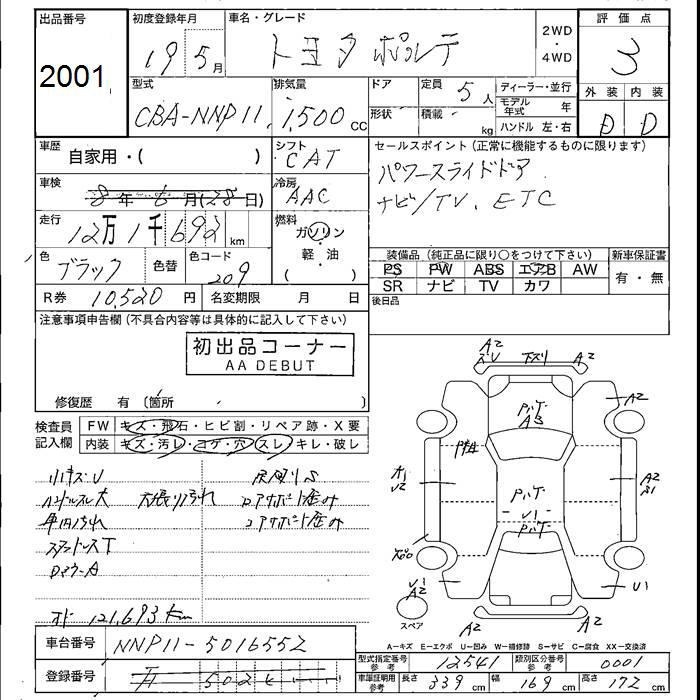 出品番号
2001
初度登録年月
19 5月
車名・グレード
トヨタ ポルテ
2WD
・
4WD
評価点
3
型式
CBA-NNP11
排気量
1,500 cc
ドア
形状
定員
5人
積載
kg
ディーラー・並行
モデル年式 年
ハンドル 左・右
外装 内装
D D
車歴
自家用・( )
シフト
CAT
セールスポイント(正常に機能するものに限ります)
パワースライドドア
ナビ/TV、ETC
車検
8年6月(28日)
冷房
AAC
走行
12万1千692 km
燃料
ガソリン
・
軽・油
( )
色
ブラック
色替
色コード
209
装備品(純正品に限り○をつけて下さい)
新車保証書
PS PW ABS エアB AW
SR ナビ TV カワ
有・無
R券 10,520 円
名変期限 月 日
後日品
注意事項申告欄(不具合内容等は具体的に記入して下さい)
初出品コーナー
AA DEBUT
修復歴 有(箇所 )
検査員
記入欄
FW キズ・飛石・ヒビ割・リペア跡・X要
内装 キズ・汚レ・コゲ・穴・スレ・キレ・破レ
小キズU
ハンドルスレ大
天張り汚れ
車内汚れ
スタッドレスT
A2
A2
下スリ
A2
パハ゛ケ
A3
A2
U2
パハ゛ケ
U1
パハ゛ケ
U1
A2
U1
A2
A2
スペア
メーター 121,693 km
車台番号
NNP11-5016552
登録番号
502
A-キズ E-エクボ U-凹み W-補修跡 S-サビ C-腐食 XX-交換済
型式指定番号
参考
12541
類別区分番号
参考
0001
車庫証明用
参考
長さ 339 cm
幅 169 cm
高さ 172 cm